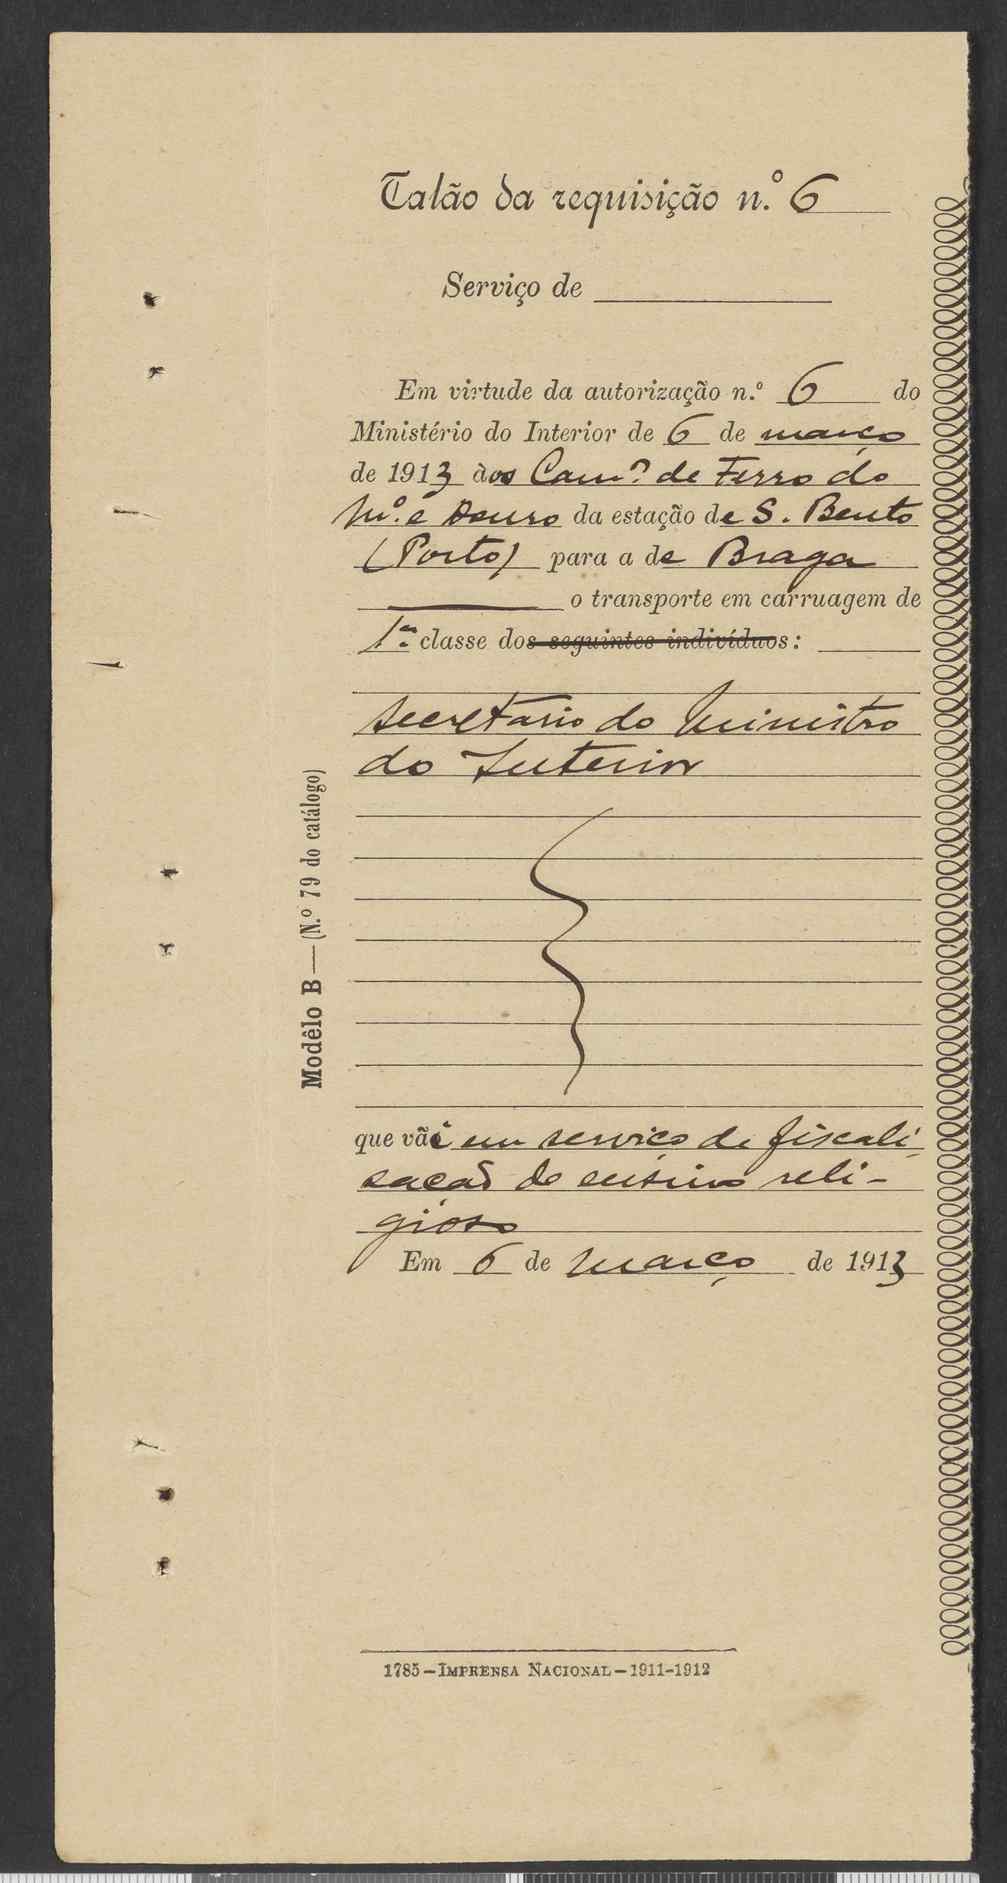 Talão da requisição n.º 6
Serviço de
Em virtude da autorização n.º 6 do
Ministério do Interior de 6 de março
de 1913 aos Cam.º de Ferro do
M.º e Douro da estação de S. Bento
(Porto) para a de Braga
o transporte em carruagem de
1.ª classe dos seguintes indivíduos:
secretario do Ministro
do Interior
que vai em serviço de fiscali
sacão do ensino reli-
gioso
Em 6 de março de 1913
Modêlo B — (N.º 79 do catálogo)
1785 — IMPRENSA NACIONAL — 1911-1912